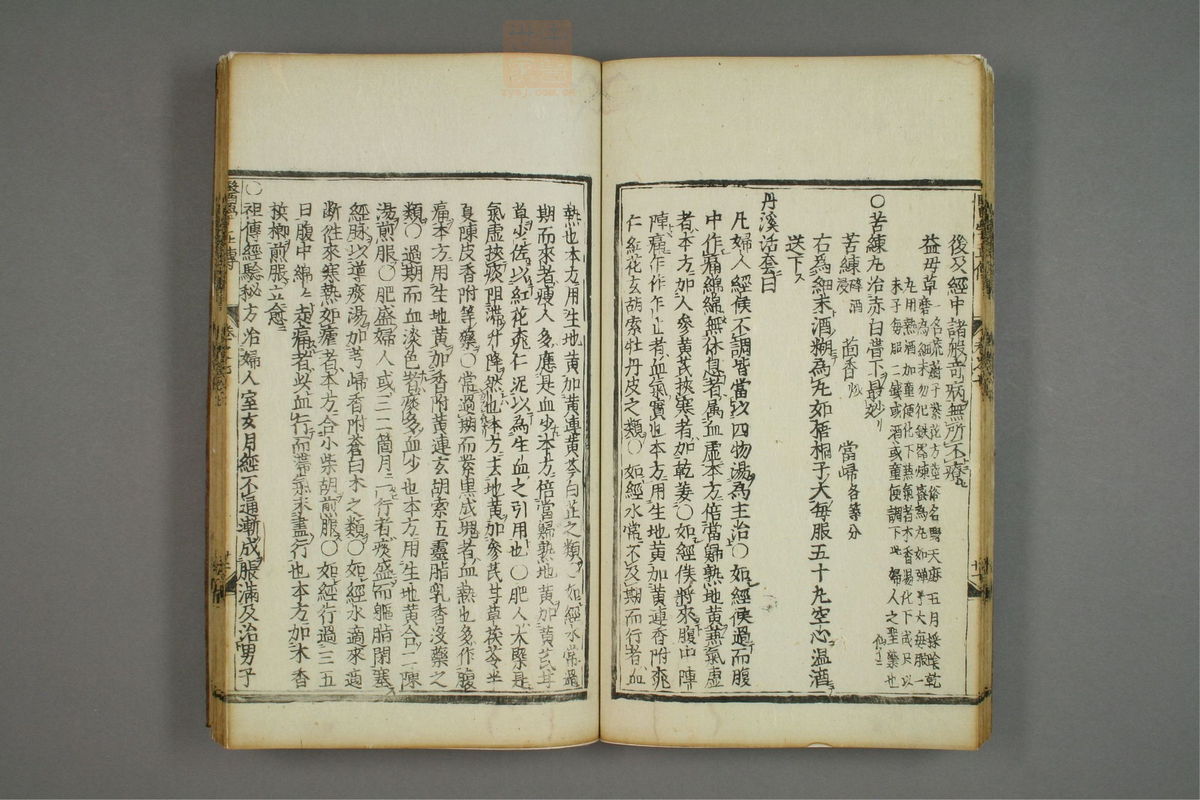 後及經中諸般奇病無所不療
益母草一名茺蔚子紫花方莖俗名野天麻五月採陰乾
磨為細末勿犯鉄器煉蜜為丸如弾子大每服一
丸用熱酒加童便化下蒸氣者木香湯化下或只以
末子每服二錢或酒或童便調下此婦人之聖藥也
○苦練丸治赤白帶下最妙
苦練碎酒浸 茴香炒 當歸各等分
右為細末酒糊為丸如梧桐子大每服五十丸空心温酒
送下
丹溪活套曰
凡婦人經候不調皆當以四物湯為主治○如經候過而腹
中作痛綿綿無休息者属血虛本方倍當歸熟地黄兼氣虛
者本方加人參黄芪挾寒者加乾姜○如經候將來腹中陣
陣痛作作乍止者血氣實也本方用生地黄加黄連香附桃
仁紅花玄胡索牡丹皮之類○如經水常不及期而行者血
熱也本方用生地黄加黄連黄芩白芷之類○如經水常過
期而來者瘦人多應是血少本方倍當歸熟地黄加黄芪甘
草少佐以紅花桃仁泥以為生血之引用也○肥人大槩是
氣虛挾痰阻滯升降然也本方去地黄加參芪甘草茯苓半
夏陳皮香附等藥○常過期而紫黒成塊者血熱也多作腹
痛本方用生地黄加香附黄連玄胡索五靈脂乳香没藥之
類○過期而血淡色者痰多血少也本方用生地黄合二陳
湯煎服○肥盛婦人或三二箇月一行者痰盛而軀脂閉塞
經脉以導痰湯加芎歸香附蒼白朮之類○如經水適來適
断往來寒熱如瘧者本方合小柴胡煎服○如經行過三五
日腹中綿綿走痛者以血行而滯氣未盡行也本方加木香
檳榔煎服立愈
○祖傳經驗秘方治婦人室女月經不通漸成脹滿及治男子